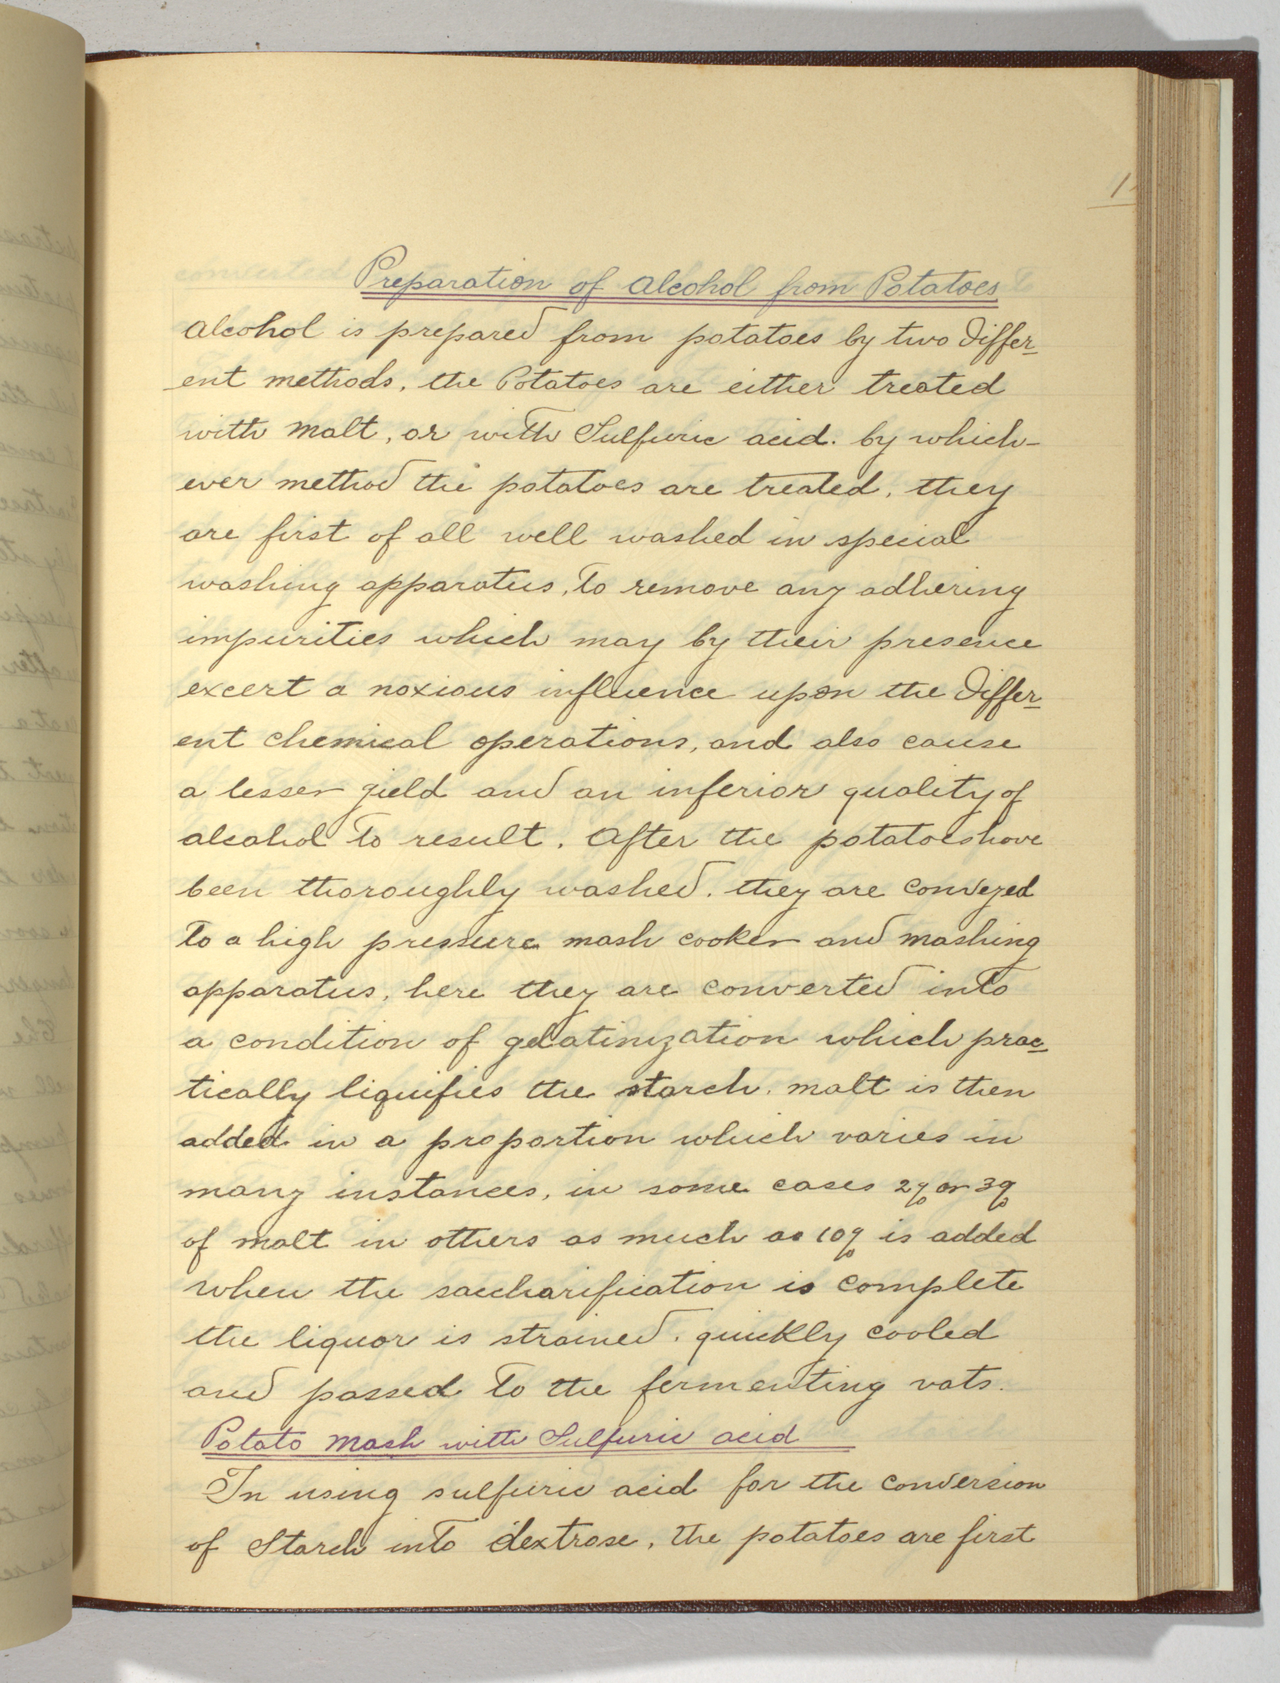 1
Preparation of Alcohol from Potatoes
Alcohol is prepared from potatoes by two differ-
ent methods, the Potatoes are either treated
with malt, or with Sulfuric acid. by which-
ever method the potatoes are treated, they
are first of all well washed in special
washing apparatus, to remove any adhering
impurities which may by their presence
excert a noxious influence upon the differ-
ent chemical operations, and also cause
a lesser yield and an inferior quality of
alcohol to result. After the potatoes have
been thoroughly washed, they are conveyed
to a high pressure mash cooker and mashing
apparatus, here they are converted into
a condition of gelatinization which prac-
tically liquifies the starch. malt is then
added in a proportion which varies in
many instances, in some cases 2% or 3%
of malt in others as much as 10% is added
when the saccharification is complete
the liquor is strained, quickly cooled
and passed to the fermenting vats.
Potato Mash with Sulfuric acid
In using sulfuric acid for the conversion
of Starch into dextrose, the potatoes are first